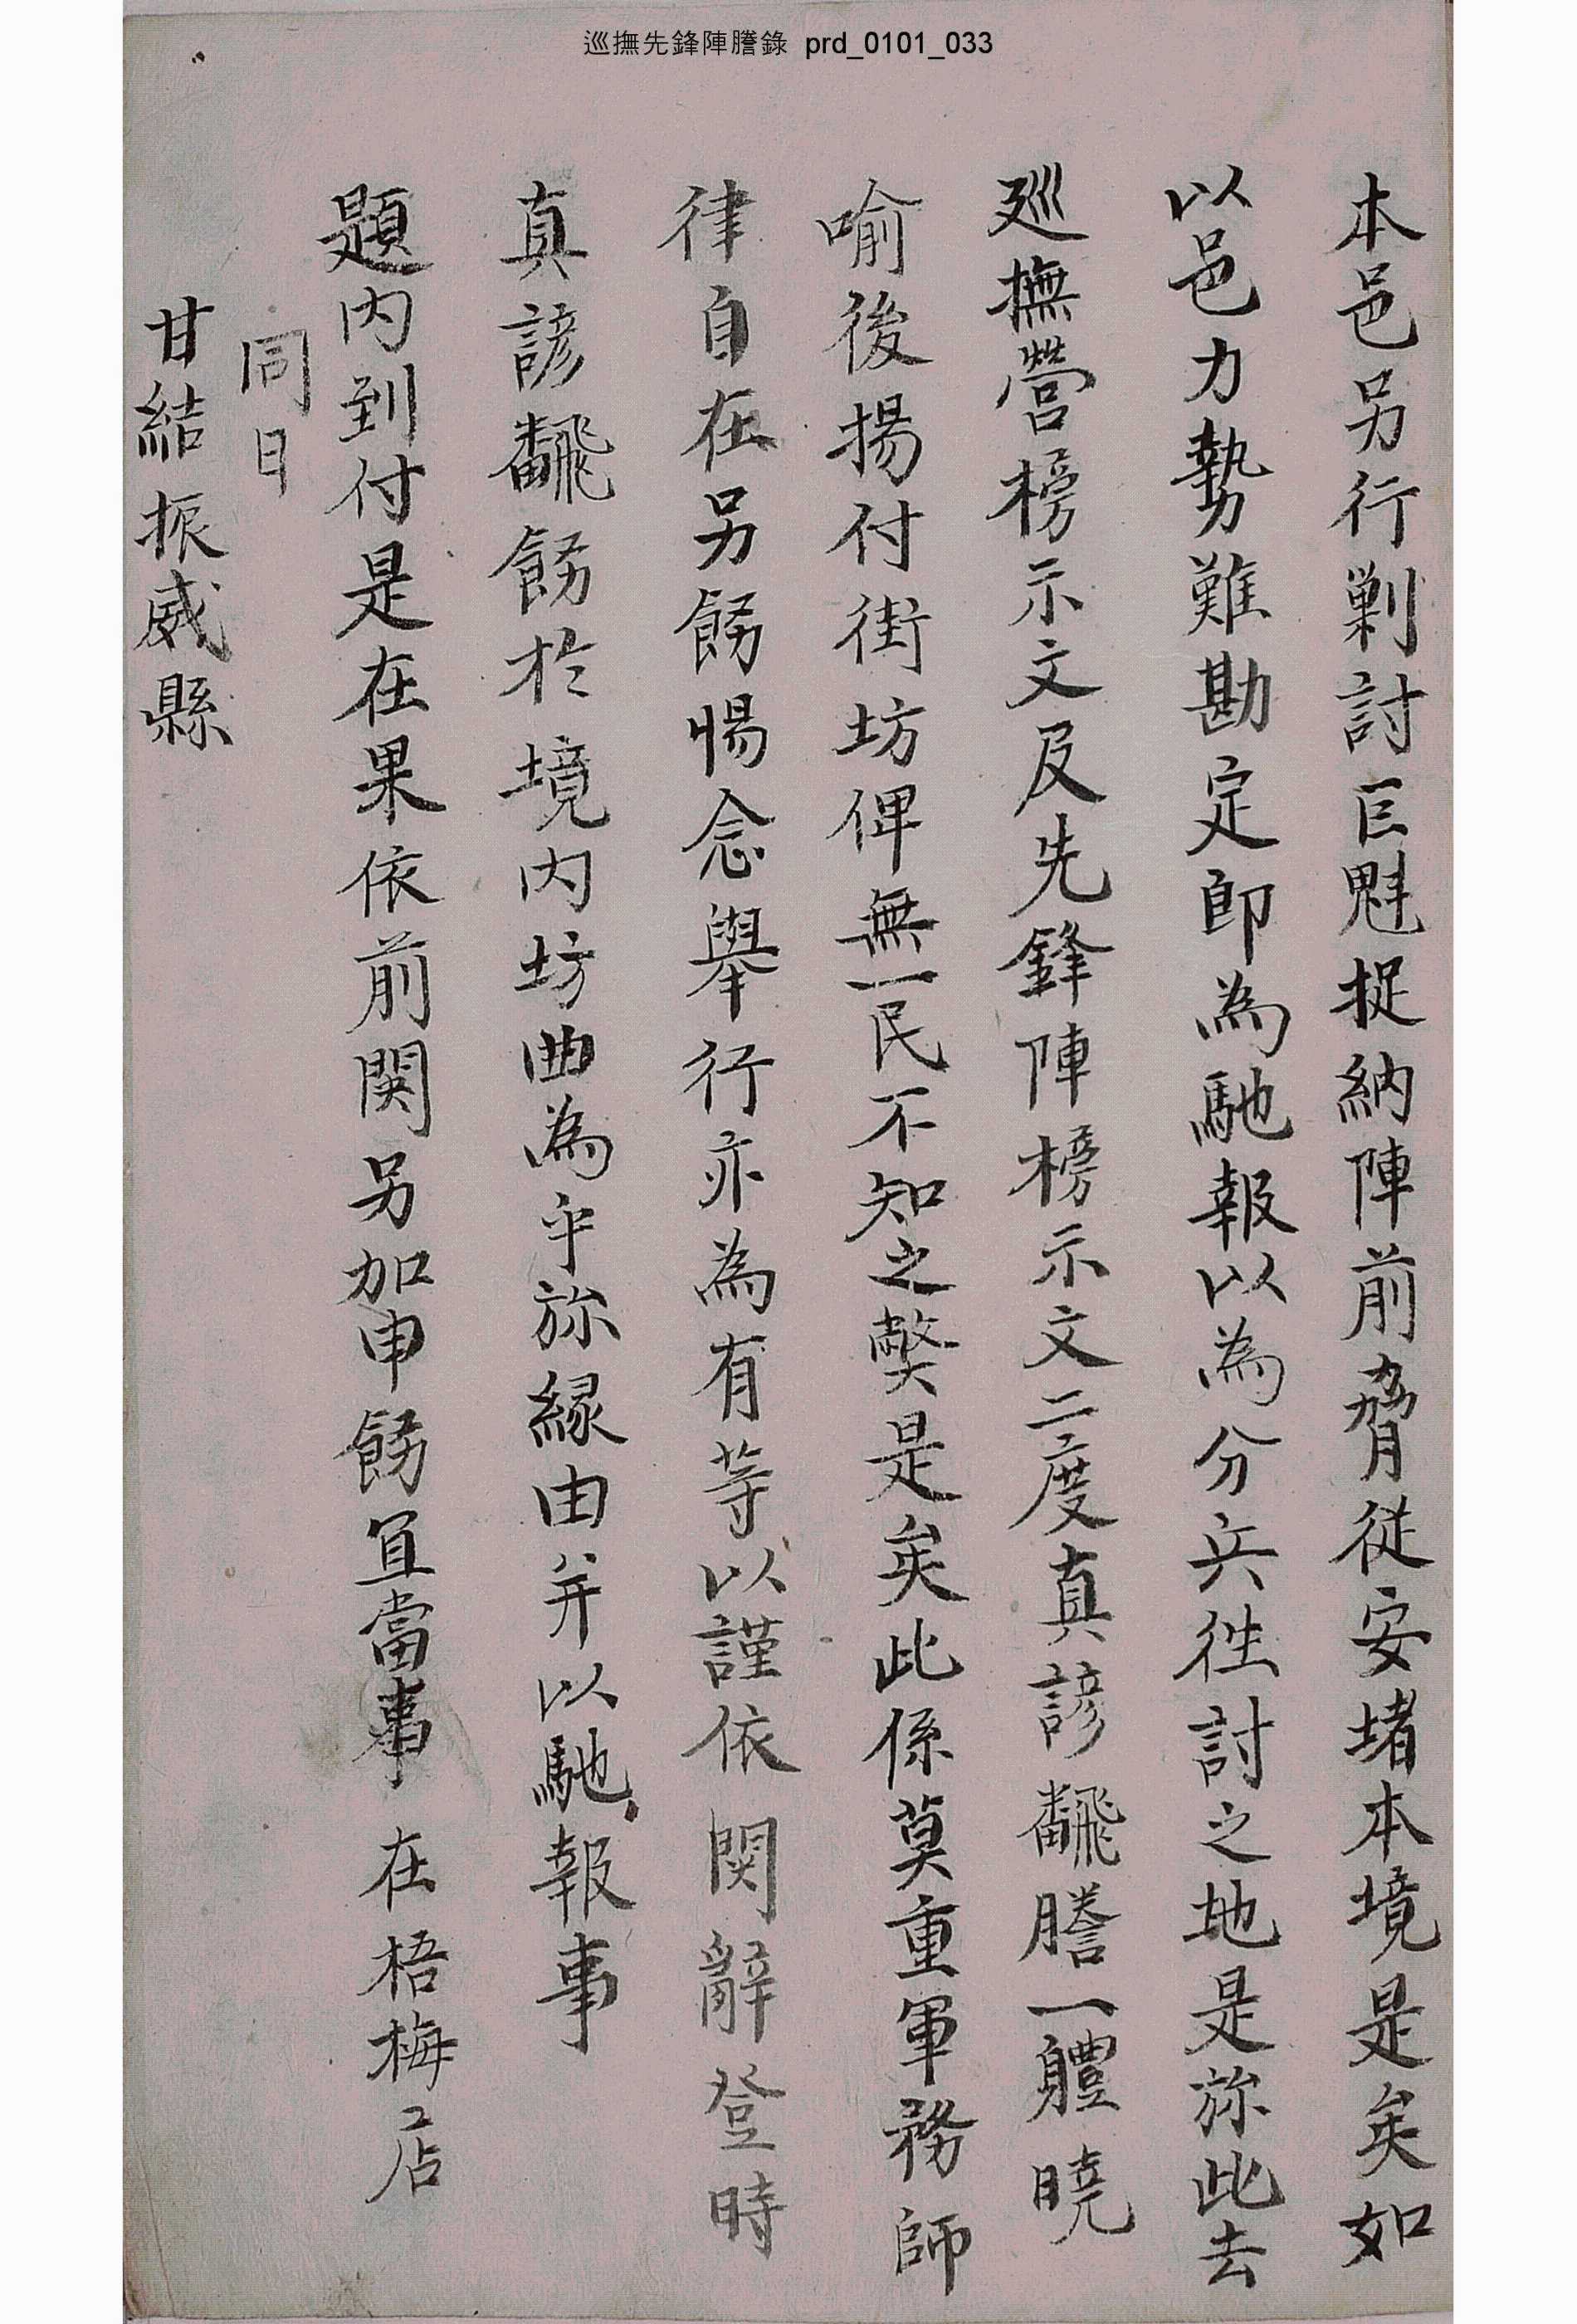 巡撫先鋒陣謄錄 prd_0101_033
本邑另行剿討巨魁捉納陣前脅從安堵本境是矣如
以邑力勢難勘定即為馳報以為分兵徃討之地是旀此去
廵撫營榜示文及先鋒陣榜示文二度真諺飜謄一軆曉
喻後揚付街坊俾無一民不知之弊是矣此係莫重軍務師
律自在另飭惕念舉行亦為有等以謹依 関辭登時
真諺飜飭於境内坊曲為乎旀緣由并以馳報事
題内到付是在果依前関另加申飭宜當事 在梧梅店
同日
甘結振威縣